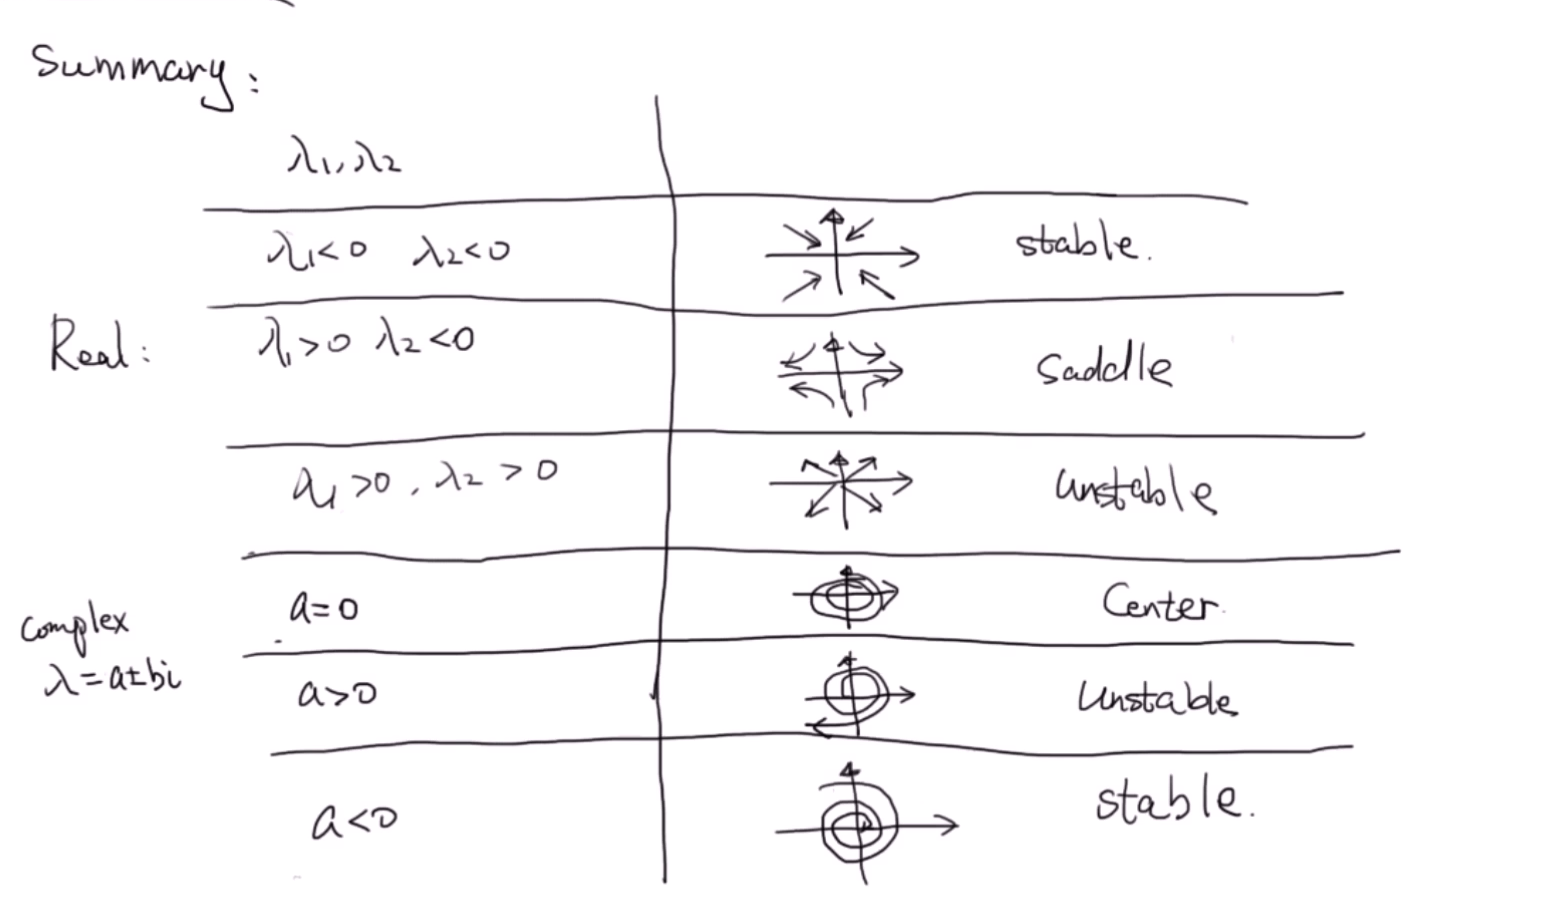 Summary:
λ₁, λ₂
λ₁<0 λ₂<0 stable.
Real: λ₁>0 λ₂<0 Saddle
λ₁>0, λ₂>0 Unstable
a=0 Center.
complex
λ=a±bi
a>0 Unstable
a<0 stable.